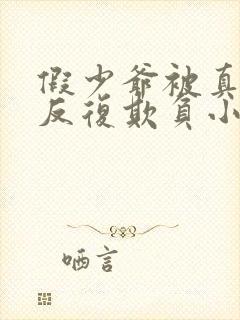 假少爷被真
反復欺負小
哂言